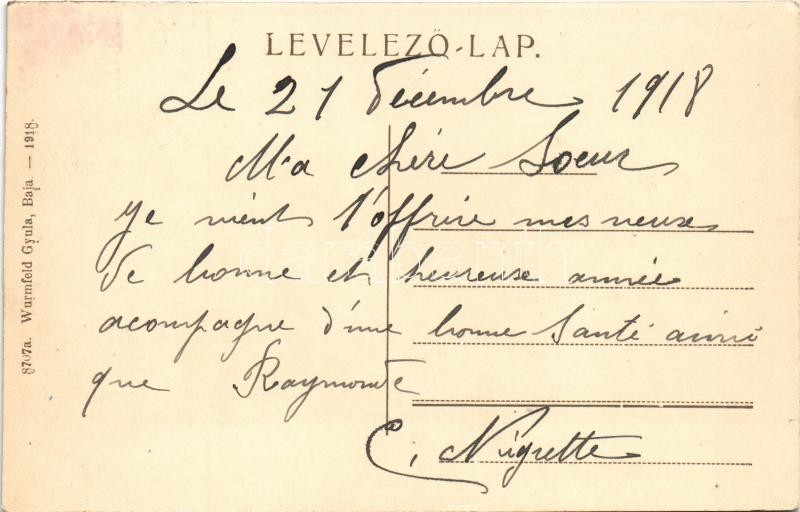 LEVELEZŐ-LAP.
Le 21 Décembre 1918
Ma chére Soeur
Je vient t'offrire mes veux
de bonne et heureuse année
acompagne d'une bonne Santé ainsi
que Raymonde
C. Nigrette
8707a. Wurmfeld Gyula, Baja. — 1918.
darabanth